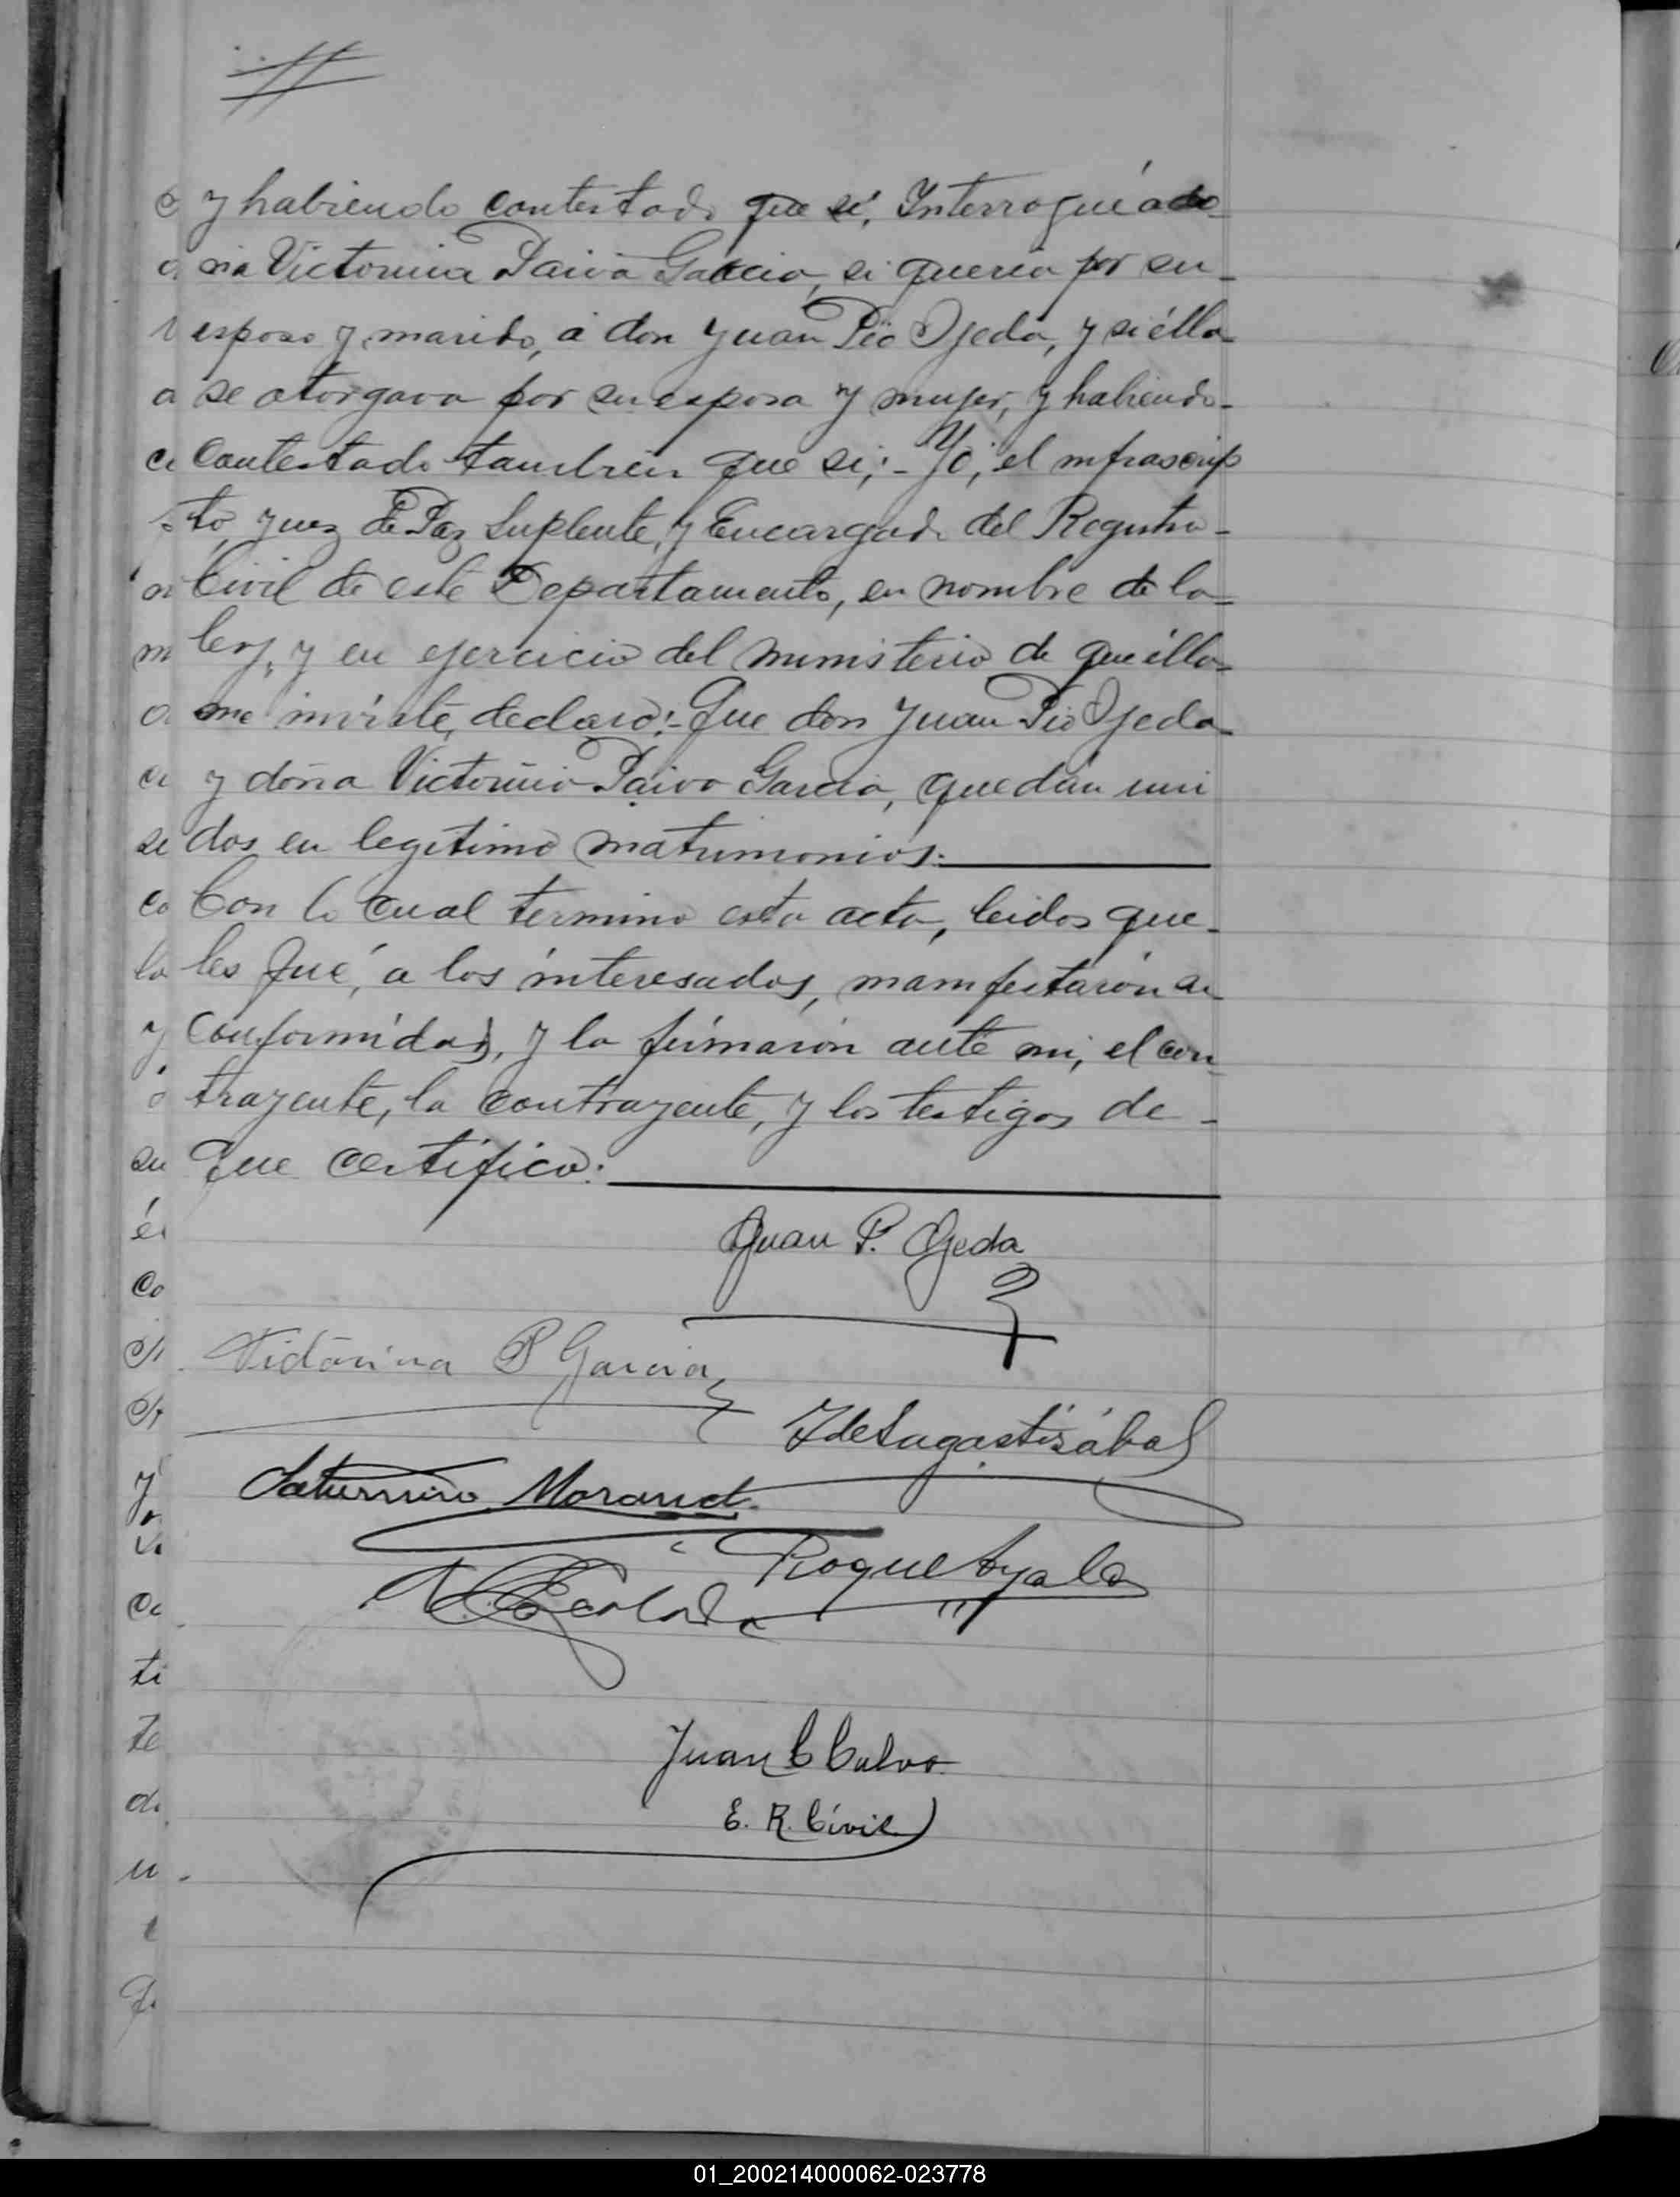 y habiendo contestado que sí, Interrogué a do
ña Victorina Paiva Garcia, si queria por su
esposo y marido, á don Juan Pio Ojeda, y si élla
se otorgava por su esposa y mujer, y habiendo
contestado tambien que si; - Yo, el infrascrip
to, Juez de Paz Suplente, y Encargado del Registro
Civil de este Departamento, en nombre de la
ley, y en ejercicio del ministerio de que élla
me inviste, declaro:- Que don Juan Pio Ojeda
y doña Victorina Paiva Garcia, quedan uni
dos en legítimo matrimonios.
Con lo cual termino esta acta, leidos que
les fué, a los interesados, manifestaron su
conformidad, y la firmaron ante mi, el con
trayente, la contrayente, y los testigos de
que certifico:
Juan P. Ojeda
Victorina P Garcia
de Sagastizábal
Saturnino Morand
Roque Ayala
Escalada
Juan C Calvo
E. R. Civil
01_200214000062-023778